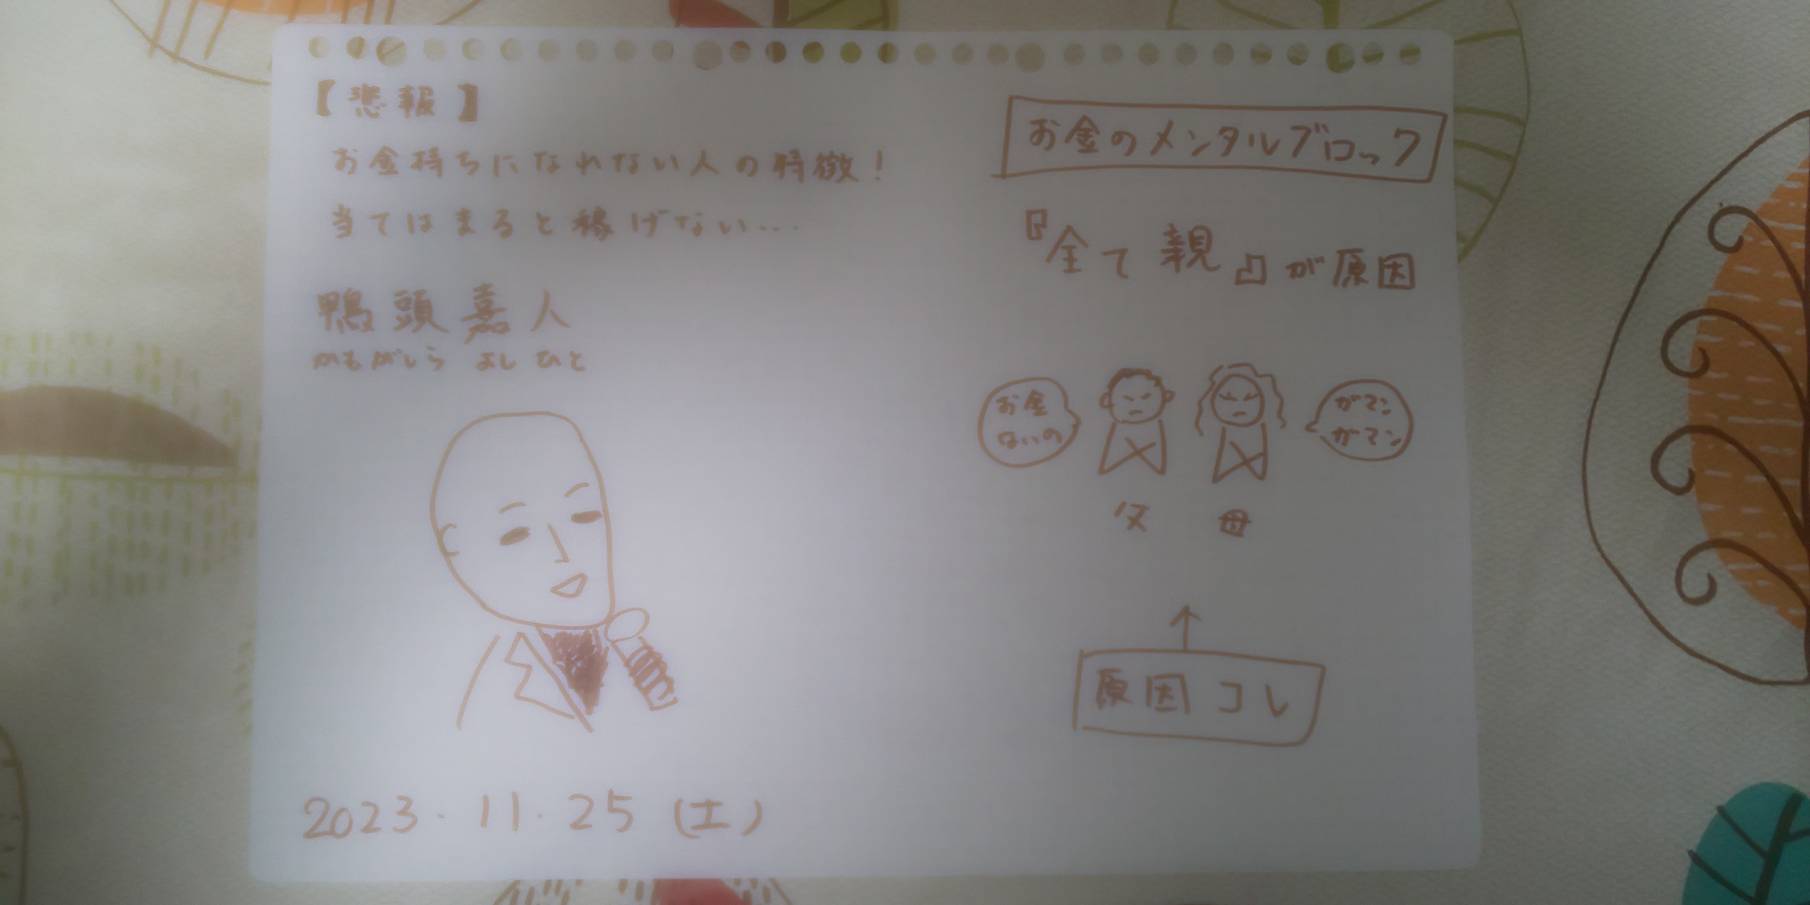 【悲報】
お金持ちになれない人の特徴！
当てはまると稼げない…
鴨頭嘉人
かもがしら よしひと
2023.11.25(土)
お金のメンタルブロック
『全て親』が原因
お金
ないの
ガマン
ガマン
父 母
原因コレ